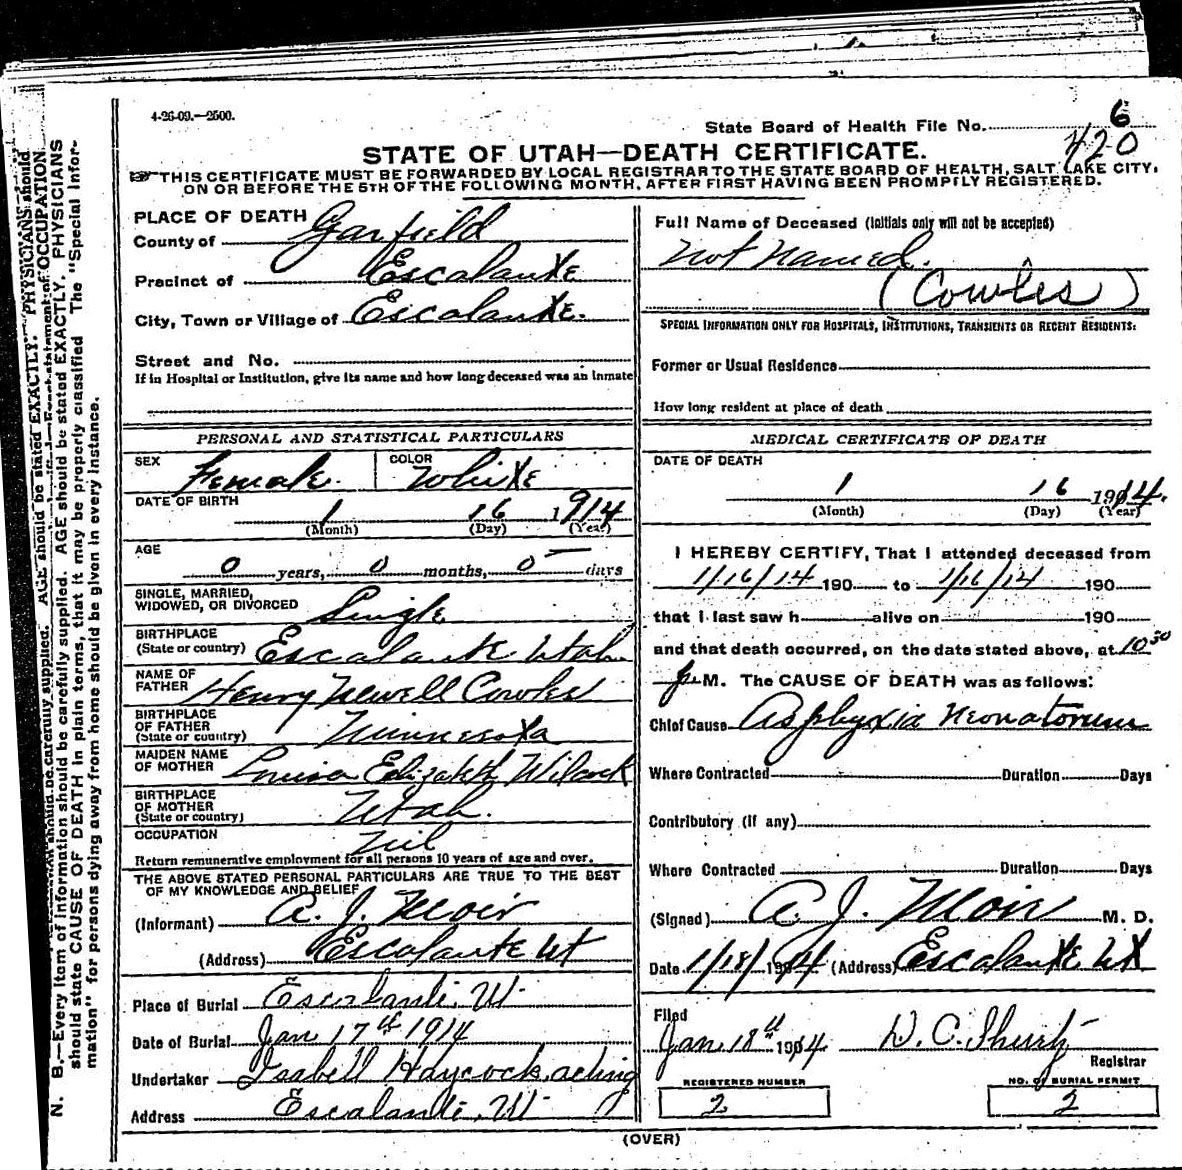 4-26-09.—2500.
State Board of Health File No. 6
420
STATE OF UTAH—DEATH CERTIFICATE.
THIS CERTIFICATE MUST BE FORWARDED BY LOCAL REGISTRAR TO THE STATE BOARD OF HEALTH, SALT LAKE CITY,
ON OR BEFORE THE 5TH OF THE FOLLOWING MONTH, AFTER FIRST HAVING BEEN PROMPTLY REGISTERED.
PLACE OF DEATH
County of Garfield
Precinct of Escalante
City, Town or Village of Escalante.
Street and No.
If in Hospital or Institution, give its name and how long deceased was an inmate
Full Name of Deceased (Initials only will not be accepted)
Not Named.
(Cowles)
SPECIAL INFORMATION ONLY FOR HOSPITALS, INSTITUTIONS, TRANSIENTS OR RECENT RESIDENTS:
Former or Usual Residence
How long resident at place of death
PERSONAL AND STATISTICAL PARTICULARS
SEX Female. COLOR White
DATE OF BIRTH 1 16 1914
(Month) (Day) (Year)
AGE
0 years, 0 months, 0 days
SINGLE, MARRIED,
WIDOWED, OR DIVORCED Single
BIRTHPLACE
(State or country) Escalante Utah
NAME OF
FATHER Henry Newell Cowles
BIRTHPLACE
OF FATHER
(State or country) Minnesota
MAIDEN NAME
OF MOTHER Louisa Elizabeth Wilcock
BIRTHPLACE
OF MOTHER
(State or country) Utah.
OCCUPATION Nil
Return remunerative employment for all persons 10 years of age and over.
THE ABOVE STATED PERSONAL PARTICULARS ARE TRUE TO THE BEST
OF MY KNOWLEDGE AND BELIEF
(Informant) A. J. Moir
(Address) Escalante Ut
Place of Burial Escalante. Ut
Date of Burial Jan 17th 1914
Undertaker Isabell Haycock, acting
Address Escalante. Ut
MEDICAL CERTIFICATE OF DEATH
DATE OF DEATH
1 16 1914.
(Month) (Day) (Year)
I HEREBY CERTIFY, That I attended deceased from
1/16/14 190 to 1/16/14 190
that I last saw h alive on 190
and that death occurred, on the date stated above, at 10 30
P. M. The CAUSE OF DEATH was as follows:
Chief Cause Asphyxia Neonatorum
Where Contracted Duration Days
Contributory (if any)
Where Contracted Duration Days
(Signed) A. J. Moir M. D.
Date 1/18/1914 (Address) Escalante Ut
Filed
Jan 18th 1914. Registrar
REGISTERED NUMBER
2
NO. OF BURIAL PERMIT
2
(OVER)
N. B.—Every item of information should be carefully supplied. AGE should be stated EXACTLY. PHYSICIANS
should state CAUSE OF DEATH in plain terms, that it may be properly classified The "Special Infor-
mation" for persons dying away from home should be given in every instance.